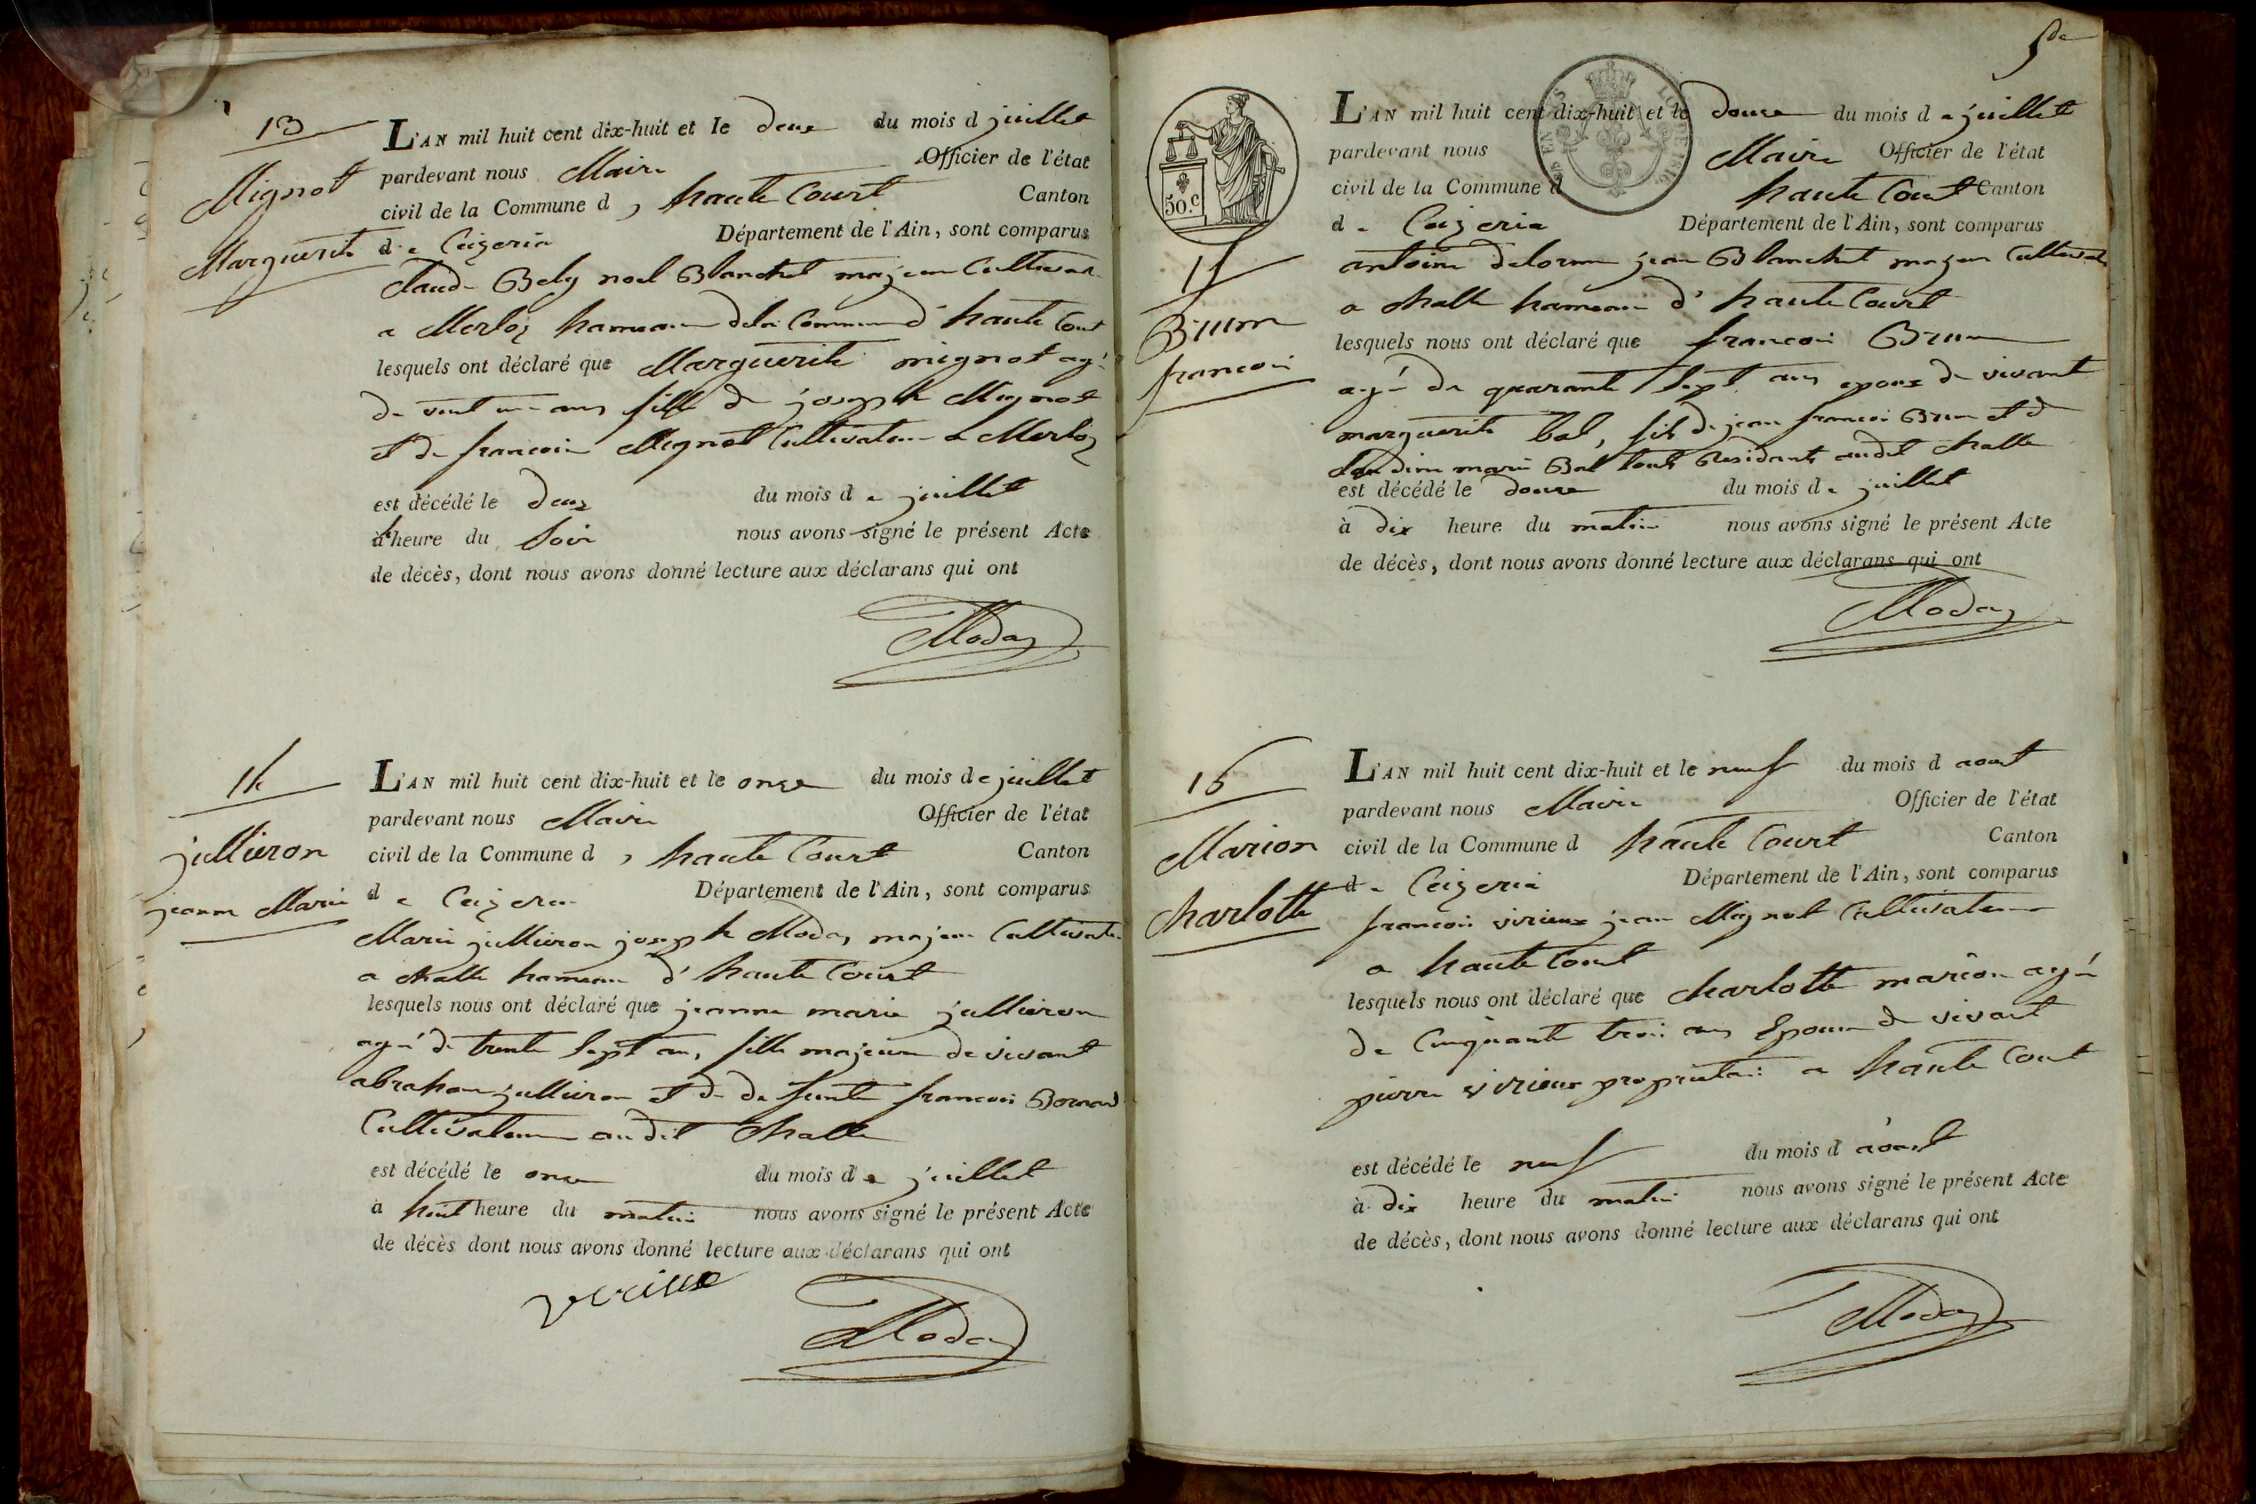 13
Mignot
Marguerite
L'AN mil huit cent dix-huit et le deux du mois d juillet
pardevant nous Maire Officier de l'état
civil de la Commune d, haute Court Canton
de Ceizeria Département de l'Ain, sont comparus
Claude Bely noel Blanchet majeur Cultivat
a Merloz hameau dela Commune d'haute Court
lesquels ont déclaré que Marguerite mignot agé
de vint une ans fille de joseph Mignot
et de francoise Mignot Cultivateur a Merloz
est décédé le deux du mois de juillet
à heure du Soir nous avons signé le présent Acte
de décès, dont nous avons donné lecture aux déclarans qui ont
Moday
14
jullieron
jeanne Marie
L'AN mil huit cent dix-huit et le onze du mois de juillet
pardevant nous Maire Officier de l'état
civil de la Commune d, haute Court Canton
de Ceizeria Département de l'Ain, sont comparus
Marie jullieron joseph Moday majeur Cultivate
a challe hameau d'haute Court
lesquels nous ont déclaré que jeanne marie jullieron
agé de trente Sept ans, fille majeure de vivant
abraham jullieron et de defunte francoise
Cultivateur audit challe
est décédé le onze du mois de juillet
à huit heure du matin nous avons signé le présent Acte
de décès dont nous avons donné lecture aux déclarans qui ont
Moday
5me
50.c
15
Brun
francois
L'AN mil huit cent dix-huit et le douze du mois de juillet
pardevant nous Maire Officier de l'état
civil de la Commune d haute Court Canton
de Ceizeria Département de l'Ain, sont comparus
antoine delorme jean Blanchet majeur Cultivat
a challe hameau d'haute Court
lesquels nous ont déclaré que francois Brun
agé de quarante Sept ans epoux de vivant
marguerite bal, fils de jean francois Brun et d
marie Bal touts Residants audit challe
est décédé le douze du mois de juillet
à dix heure du matin nous avons signé le présent Acte
de décès, dont nous avons donné lecture aux déclarans qui ont
Moday
16
Marion
charlotte
L'AN mil huit cent dix-huit et le neuf du mois d aout
pardevant nous Maire Officier de l'état
civil de la Commune d haute Court Canton
de Ceizeria Département de l'Ain, sont comparus
francois virieux jean Mignot Cultivateur
a haute Court
lesquels nous ont déclaré que charlotte marion agé
de Cinquante trois ans Epouse de vivant
pierre virieux proprietaire a haute Court
est décédé le neuf du mois d aout
à dix heure du matin nous avons signé le présent Acte
de décès, dont nous avons donné lecture aux déclarans qui ont
Moday